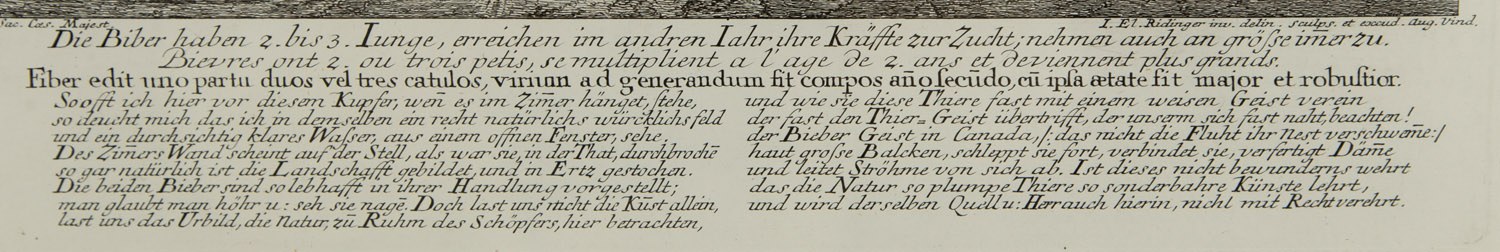 Sac. Cæs. Majest.
I. El. Ridinger inv. delin. sculps. et excud. Aug. Vind.
Die Biber haben 2. bis 3. Iunge, erreichen im andren Iahr ihre Kräffte zur Zucht; nehmen auch an größe im̅er zu.
Bievres ont 2. ou trois petis, se multiplient a l'age de 2. ans et deviennent plus grands.
Fiber edit uno partu duos vel tres catulos, virium ad generandum fit compos an̅o secu̅do, cu̅ ipsa ætate fit major et robustior.
So offt ich hier vor diesem Kupfer, wen̅ es im Zim̅er hänget, stehe,
so deucht mich das ich in demselben ein recht natürlichs würcklichs feld
und ein durchsichtig klares Wasser, aus einem offnen Fenster, sehe.
Des Zim̅ers Wand scheint auf der Stell, als war sie, in der That, durchbroche̅
so gar natürlich ist die Landschafft gebildet, und in Ertz gestochen.
Die beiden Bieber sind so lebhafft in ihrer Handlung vorgestellt;
man glaubt man höhr u: seh sie nage̅. Doch last uns nicht die Ku̅st allein,
last uns das Urbild, die Natur, zu̅ Ruhm des Schöpfers, hier betrachten,
und wie sie diese Thiere fast mit einem weisen Geist verein
der fast den Thier= Geist übertrifft, der unserm sich fast naht, beachten!
der Bieber Geist in Canada, /: das nicht die Fluht ihr Nest verschwem̅e:/
haut große Balcken, schleppt sie fort, verbindet sie, verfertigt Däm̅e
und leitet Ströhme von sich ab. Ist dieses nicht bewunderns wehrt
das die Natur so plumpe Thiere so sonderbahre Künste lehrt,
und wird derselben Quell u: Herr auch hierin, nicht mit Recht verehrt.